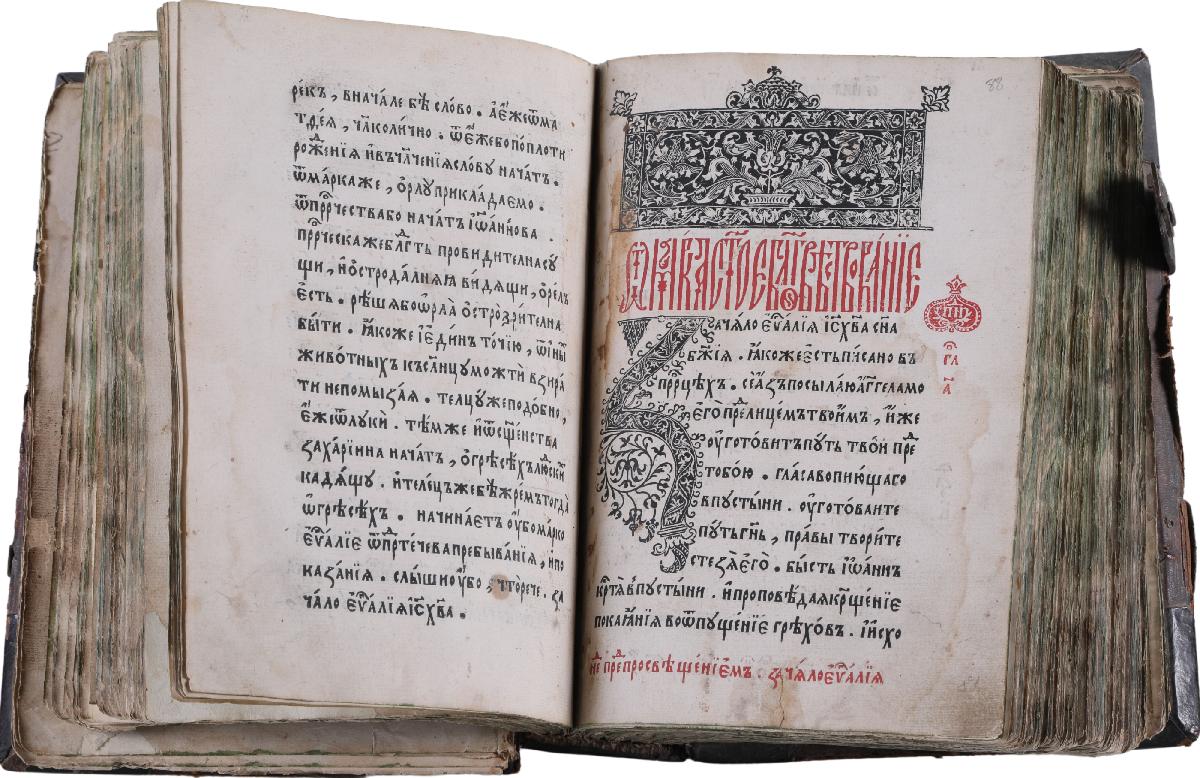 рекъ , вначале бѣ сло́во . а е́же ѿ ма
тѳе́а , ча́коли́чно . ѿе́же бо по пло́ти
роже́нїѧ и҆ въчл҃че́нїѧ сло́ву нача́тъ .
ѿ ма́рка же , ѻ҆рлу̀ прикла́даемо .
ѿ прⷪ҇рчества бо нача́тъ і҆ѡа́ннова .
прⷪ҇рческаѧ же блгⷣть провиди́телнасу
щи , и҆ ѻ҆стрѡ да́лнѧѧ ви́дѧщи , ѻ҆ре́лъ
е҆́сть . рѣ́шѧ бо ѻ҆рла̀ ѻ҆строзри́телна
бы́ти . ꙗ҆́коже і҆ еди́нъ то́чїю , ѿ и҆ны́
живо́тныхъ къ со́лнцу мо́жтѝ взира́
ти непомыза́ѧ . телцу́же подо́бно ,
е҆́же ѿ луки̇ . тѣ́мже и҆ ѿ сщ҃е́нства
заха́рїина нача́тъ , ѻ҆ грѣсѣ́хъ лю́скⷣи
кадѧ́щу . и҆ теле́цъ же бѣ̀ жре́мъ тогда̀
ѡ҆ грѣсѣ́хъ . начина́етъ оу҆́бо ма́рко
є҆ѵⷢ҇алїе ѿ прⷣте́чева пребыва́нїѧ , и҆ по
каза́нїѧ . слы́ши оу҆́бо , что̀ рече . за
ча́ло є҆ѵⷢ҇алїѧ і҆с҃ъ хв҃а .
88
за́чѧло є҆ѵⷢ҇алїѧ і҆с҃ъ хв҃а сн҃а
бж҃їѧ . ꙗ҆́коже е҆́сть пи́сано въ
прⷪ҇рцѣхъ . се́ а҆́зъ посыла́ю а҆́гг҃ела мо
его̀ прⷣе лице́мъ твои́мъ , и҆́же
оу҆гото́витъ пу́ть тво́й прⷣе
тобо́ю . гла́съ вопїю́щаго
впусты́ни . оу҆гото́ваите
пу́ть гн҃ь , пра́вы твори́те
стезѧ̀ е҆го̀ . бы́сть і҆ѡа́ннъ
кр҃тѧ́ впусты́ни . и҆ проповѣ́даѧ кр҃ще́нїе
покаѧ́нїѧ во ѿпуще́нїе грѣхо́въ . и҆ и҆схо
не прⷣе просвѣще́нїемъ . зачѧ́ло є҆ѵⷢ҇а́лїѧ